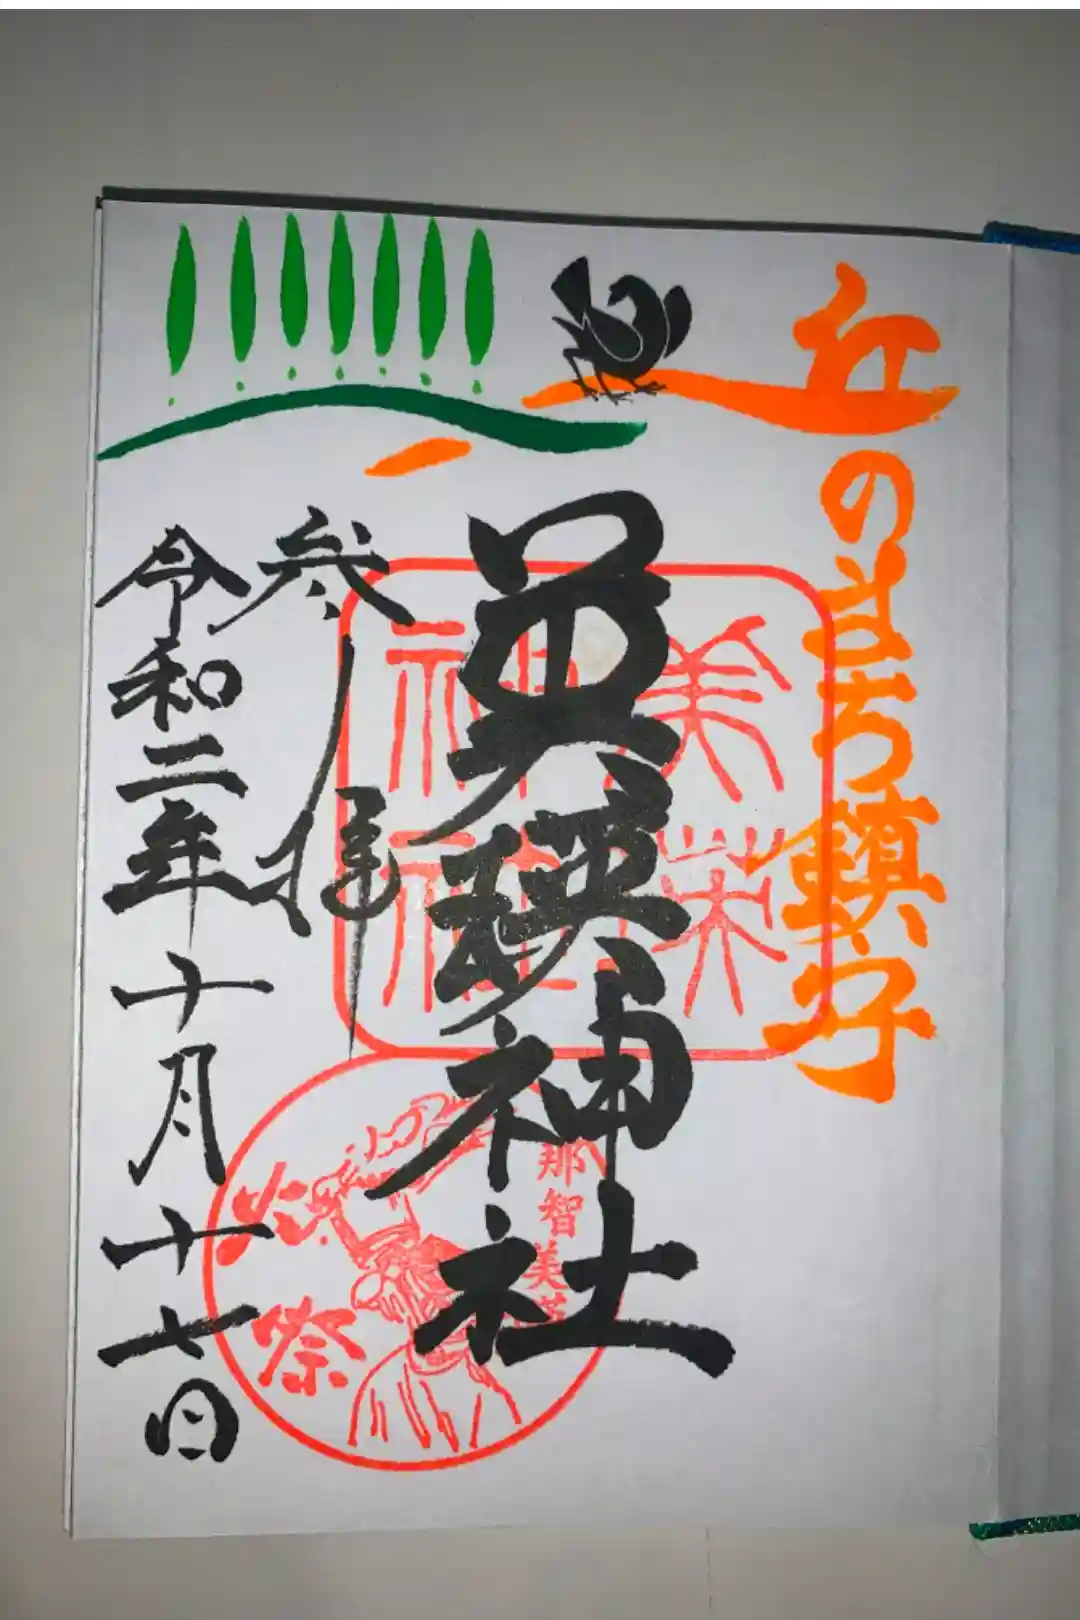 丘のまち鎮守
美瑛神社
参拝
令和二年十月十七日
美瑛
神社
那智美
火祭